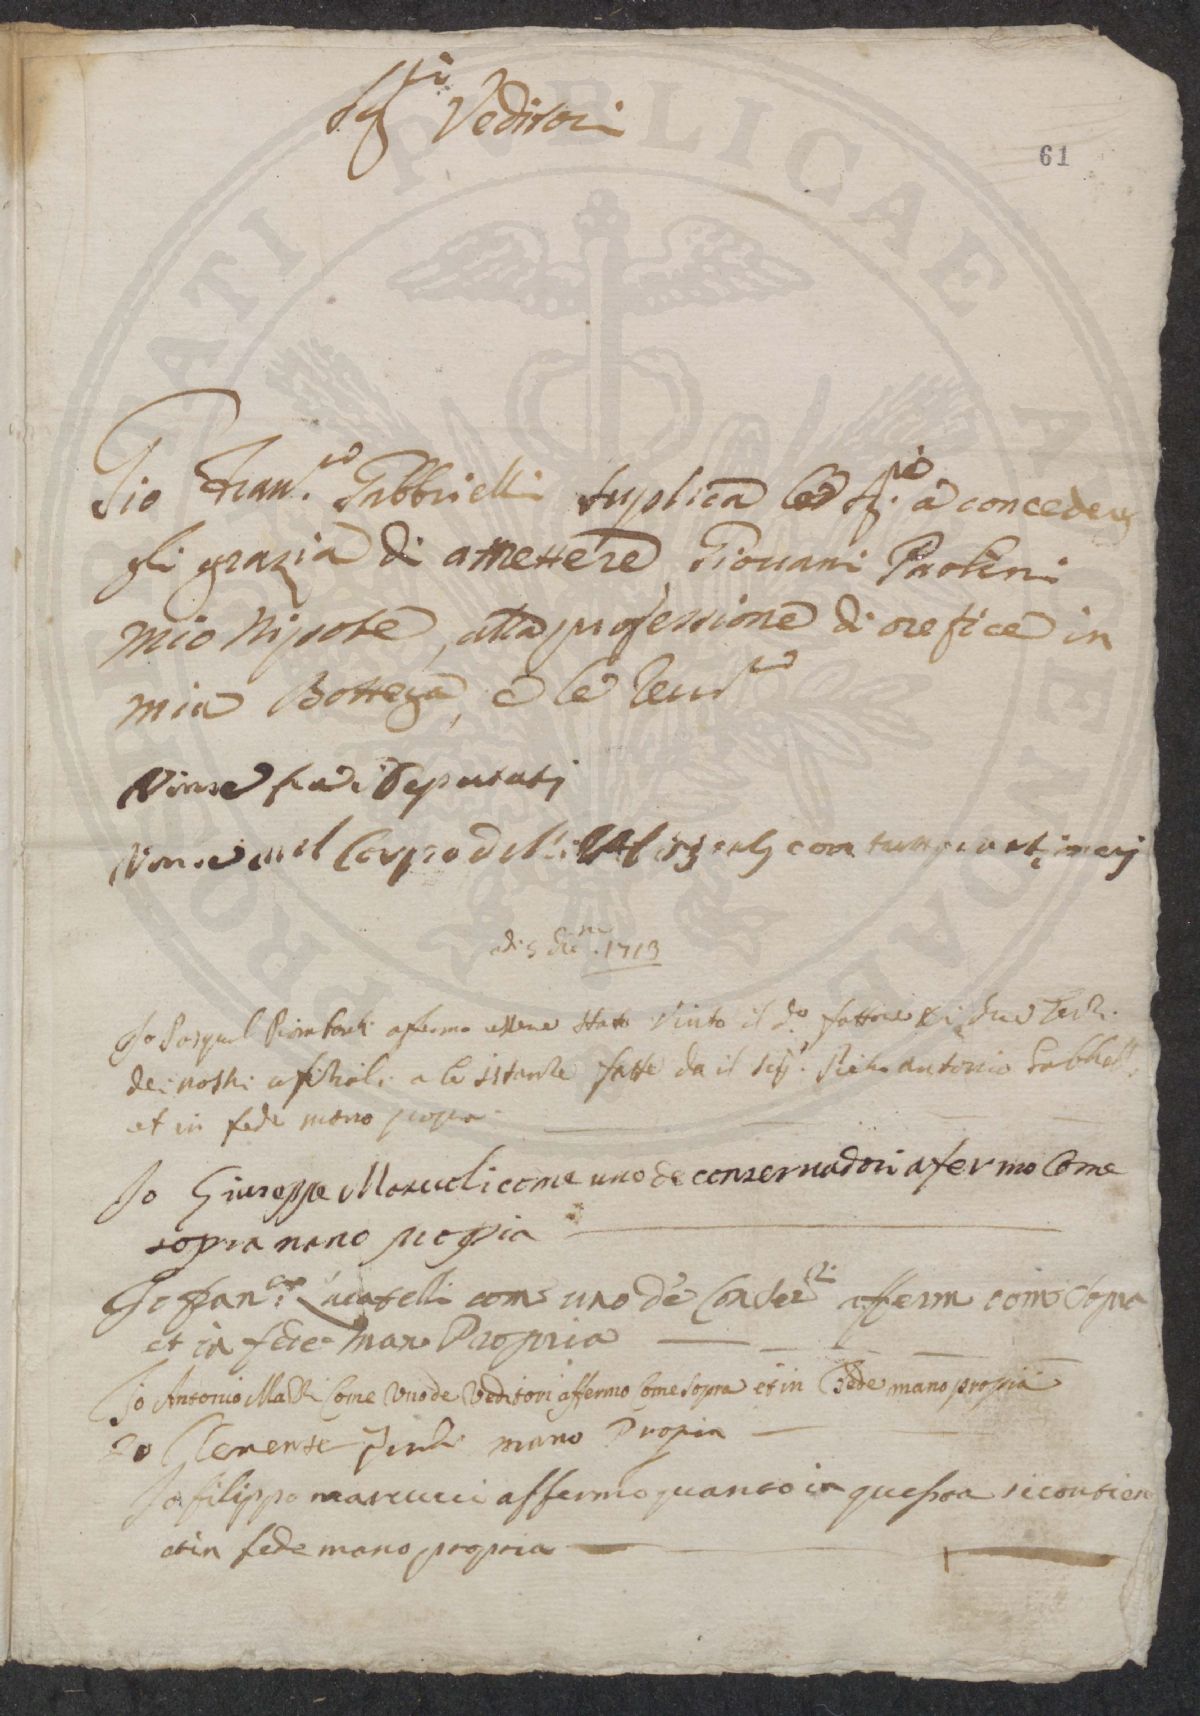 Sig.ri Veditori
61
Gio Fran.co Gabbrielli suplica le Sig.rie a conceder
gli grazia di amettere Giouani Paolini
mio Nipote, alla professione di orefice in
mia Bottega, e le
Vinse fra i Deputati
Vinse nel Corpo con tutti
adi 5 dic.re 1713
Io affermo essere stato Vinto il d.o fattore
de nostri a le istanze fatte da il Sig.r antonio
et in fede mano propia
Io Giuseppe come uno de conseruadori afermo Come
sopra mano propia
Io Fran.co Lucatelli come uno de Conser.ri afferm come Sopra
et in fede Mano Propria
Io Antonio Come Vno de Veditori affermo Come Sopra et in Fede mano propria
Io Clemente mano Propia
Io filippo marcucci affermo quanto in questa si contien
et in fede mano propria
PROSPERITATI PVBLICAE AVGENDAE